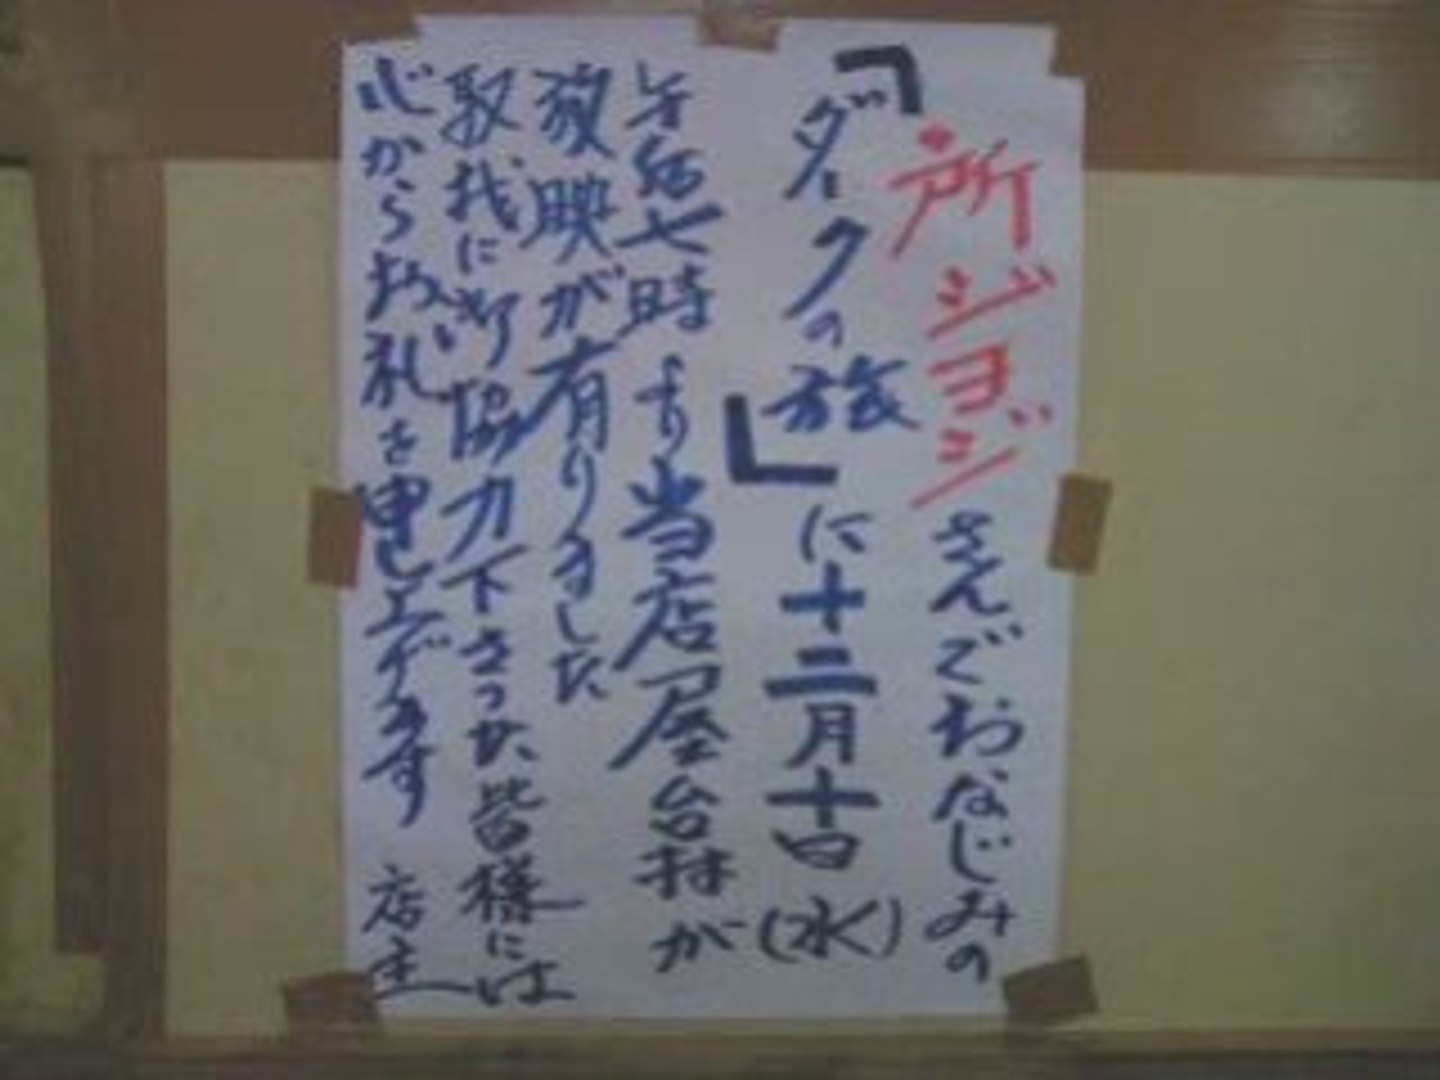 所ジョージさんごおなじみの
「ダーツの旅」に十二月十日(水)
午后七時より当店屋台村が
放映が有りました
取材に御協力下さった皆様には
心からお礼を申し上げます 店主